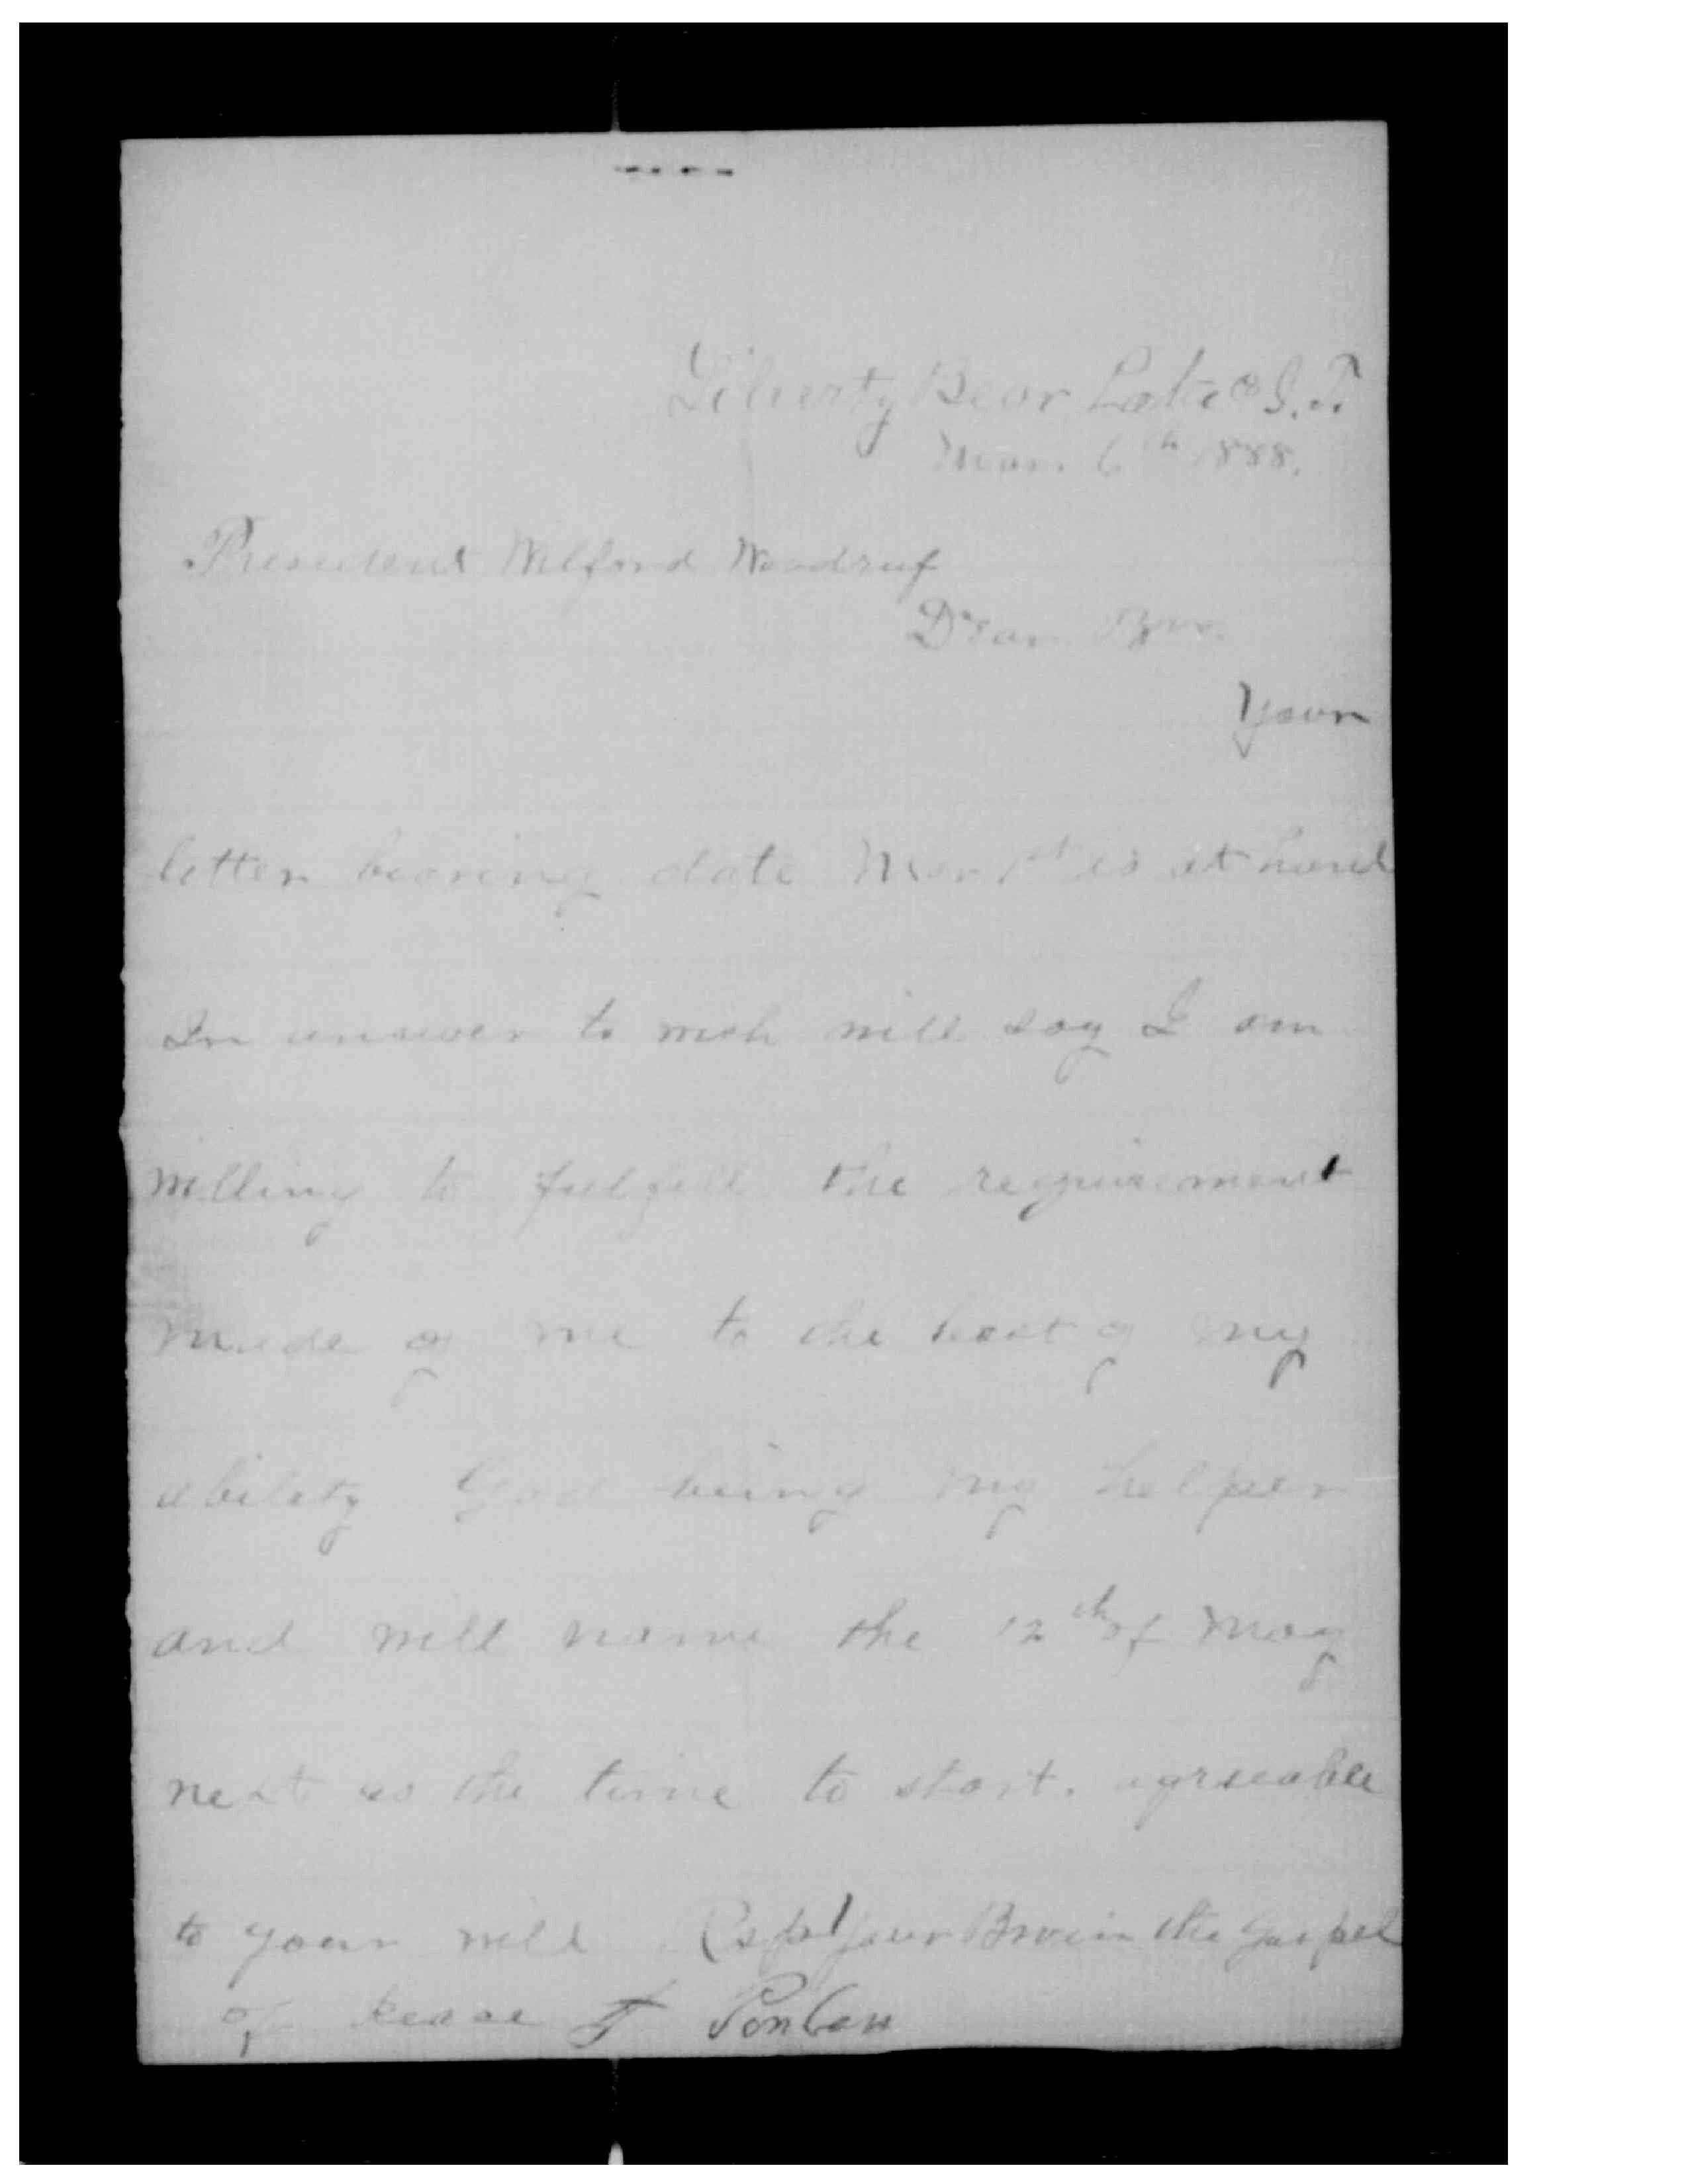 Liberty Bear Lake Co I.T.
Mar. 6th 1888.
President Wilford Woodruf
Dear Bro.
Your
letter bearing date Mar 1st is at hand
In answer to wich will say I am
willing to fulfill the requirement
made of me to the best of my
ability God being my helper
and will name the 12th of May
next as the time to start. agreeable
to your will Resp Your Bro in the Gospel
of Peace F